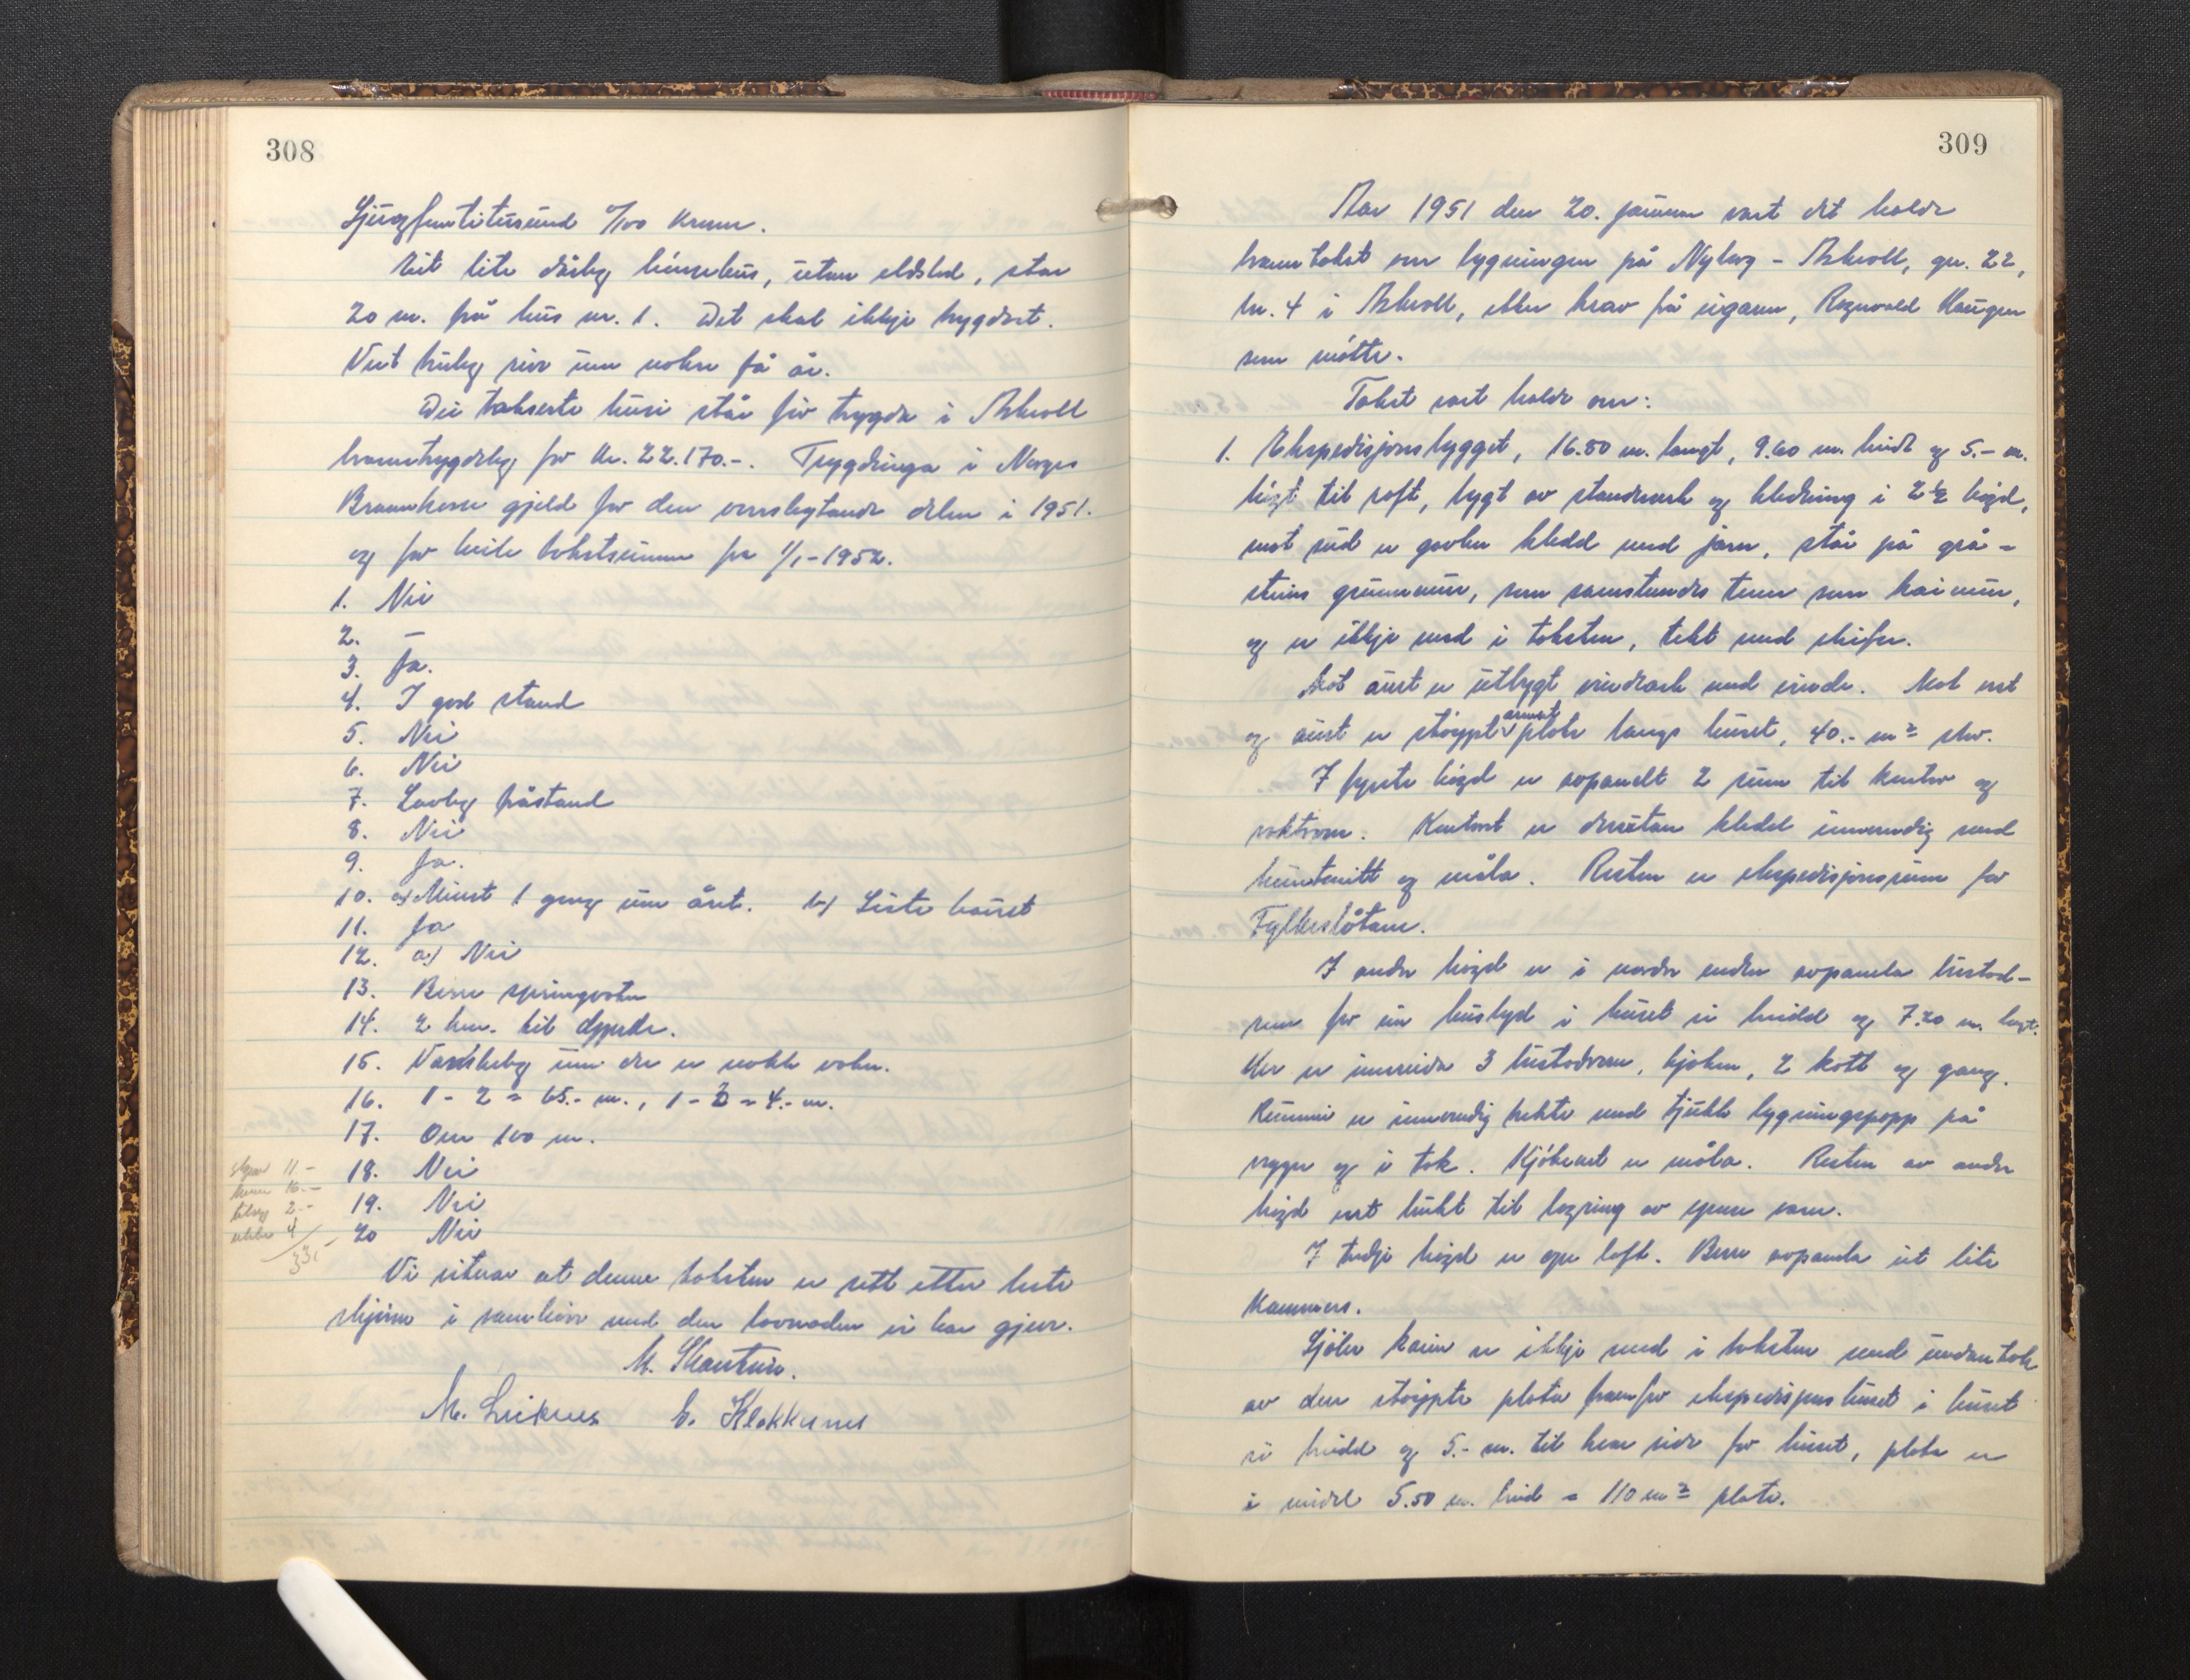 308
Sjugfemtitusund 0/100 kroner.
Eit lite dårleg hønsehus, utan eldsted, står
20 m. frå hus nr. 1. Det skal ikkje trygdast.
Vert truleg rive um nokre få år.
Dei takserte husi står før trygda i Askvoll
branntrygdelag for kr. 22.170.-. Trygdinga i Norges
Brannkasse gjeld for den overskytande delen i 1951.
og for heile takstsummen fra 1/1-1952.
1. Nei
2. —
3. Ja.
4. I god stand
5. Nei
6. Nei
7. Lovleg tilstand
8. Nei
9. Ja.
10. a) Minst 1 gong um året. b) Siste haust
11. Ja
12. a) Nei
13. Berre springvatn
14. 2 km. til
15. Vanskeleg um der er nokk vatn.
16. 1 - 2 = 65.- m., 1 - 3 = 4.- m.
17. Over 100 m.
18. Nei
19. Nei
20 Nei
skyss 11.-
16.-
tilseg 2.-
4
33.-
Vi vitnar at denne taksten er sett etter beste
skjøn i samhøve med den lovnaden vi har gjeve.
M. Leiknes E. Klokkernes
309
Aar 1951 den 20. januar vart det halde
branntakst over bygningen på Nyborg - Askvoll, gnr. 22,
bnr. 4 i Askvoll, etter krav frå eigaren, Ragnvald Haugen
som møtte.
Takst vart halde over:
1. Ekspedisjonsbygget, 16.80 m. langt, 9.60 m. breidt og 5.- m.
høgt til roft, bygt av standverk og kledning i 2½ høgd,
mot sud er gavlen kledd med jarn, står på grå-
steins grunnmur, som samstundes tener som kaimur,
og er ikkje med i taksten, tekt med skifer.
Mot aust er utbygt vindark med vinde. Mot vest
og aust er støypt armert plate langs huset, 40.- m² stor.
I fyrste høgd er avpanelt 2 rum til kontor og
vaktrom. Kontoret er dessutan kledd innvendig med
huntonitt og måla. Resten er ekspedisjonsrum for
Fylkesbåtane.
I andre høgd er i nordre enden avpanela bustad-
rum for ein huslyd i huset si breidd og 7.20 m. langt.
Her er innreidd 3 bustadrom, kjøken, 2 kott og gang.
Rummi er innvendig trekte med tjukk bygningspapp på
vegger og i tak. Kjøkenet er måla. Resten av andre
høgd vert brukt til lagring av ymse varer.
I tredje høgd er ope loft. Berre avpanela eit lite
kammers.
Sjølve kaien er ikkje med i taksten med undantak
av den støypte plata framfor ekspedisjonshuset i huset
si breidd og 5.- m. til kvar side for huset, plata er
i midel 5.50 m. breid = 110 m² plate.